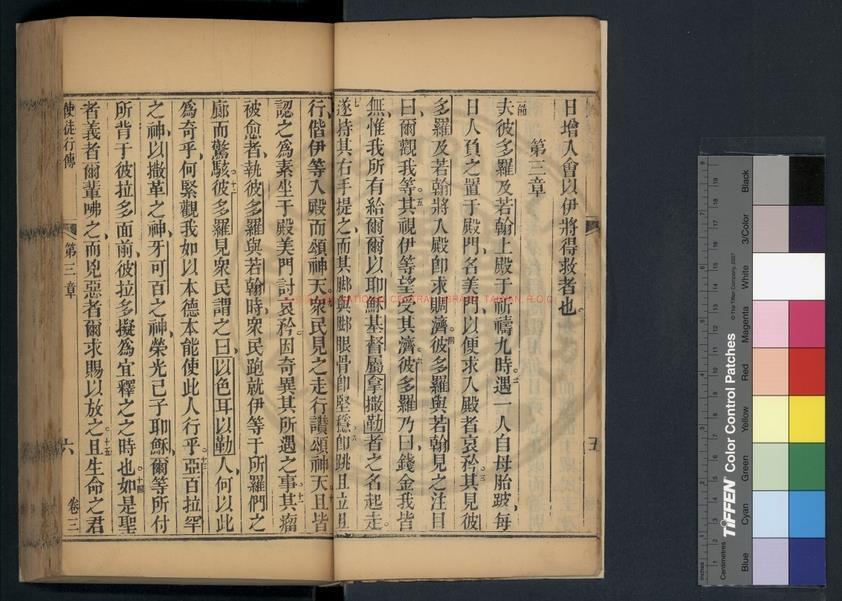 日增人會以伊將得救者也。
第三章
夫彼多羅及若翰上殿于祈禱九時遇一人自母胎跛每
日人負之置于殿門名美門以便求入殿者哀矜其見彼
多羅及若翰將入殿卽求賙濟彼多羅與若翰見之注目
曰爾觀我等其視伊等望受其濟彼多羅乃曰錢金我皆
無惟我所有給爾爾以耶穌基督屬拿撒勒者之名起走
遂持其右手提之而其脚與脚眼骨卽堅穩卽跳且立且
行偕伊等入殿而頌神天衆民見之走行讚頌神天且皆
認之為素坐于殿美門討哀矜因奇異其所遇之事其瘤
被愈者執彼多羅與若翰時衆民跑就伊等于所羅們之
廊而驚駭彼多羅見衆民謂之曰以色耳以勒人何以此
為奇乎何緊觀我如以本德本能使此人行乎亞百拉罕
之神以撒革之神牙可百之神榮光己子耶穌爾等所付
所背于彼拉多面前彼拉多擬為宜釋之之時也如是聖
者義者爾輩咈之而兇惡者爾求賜以放之且生命之君
使徒行傳
第三章
六
卷三
五
NATIONAL CENTRAL LIBRARY, TAIWAN, R.O.C.
TIFFEN Color Control Patches
© The Tiffen Company, 2007
Centimetres
Inches
Blue
Cyan
Green
Yellow
Red
Magenta
White
3/Color
Black